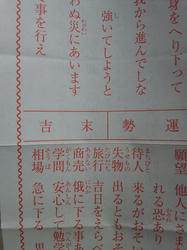 身をへり下って
我から進んでしな
強いてしようと
わぬ災にあいます
事を行え
運勢 末吉
願望 他人にさ
れる恐あり
待人 来るがおそ
失物 出るともおそ
旅行 吉日をえら
商売 俄に下る事あ
学問 安心して勉学
相場 急に下る 思